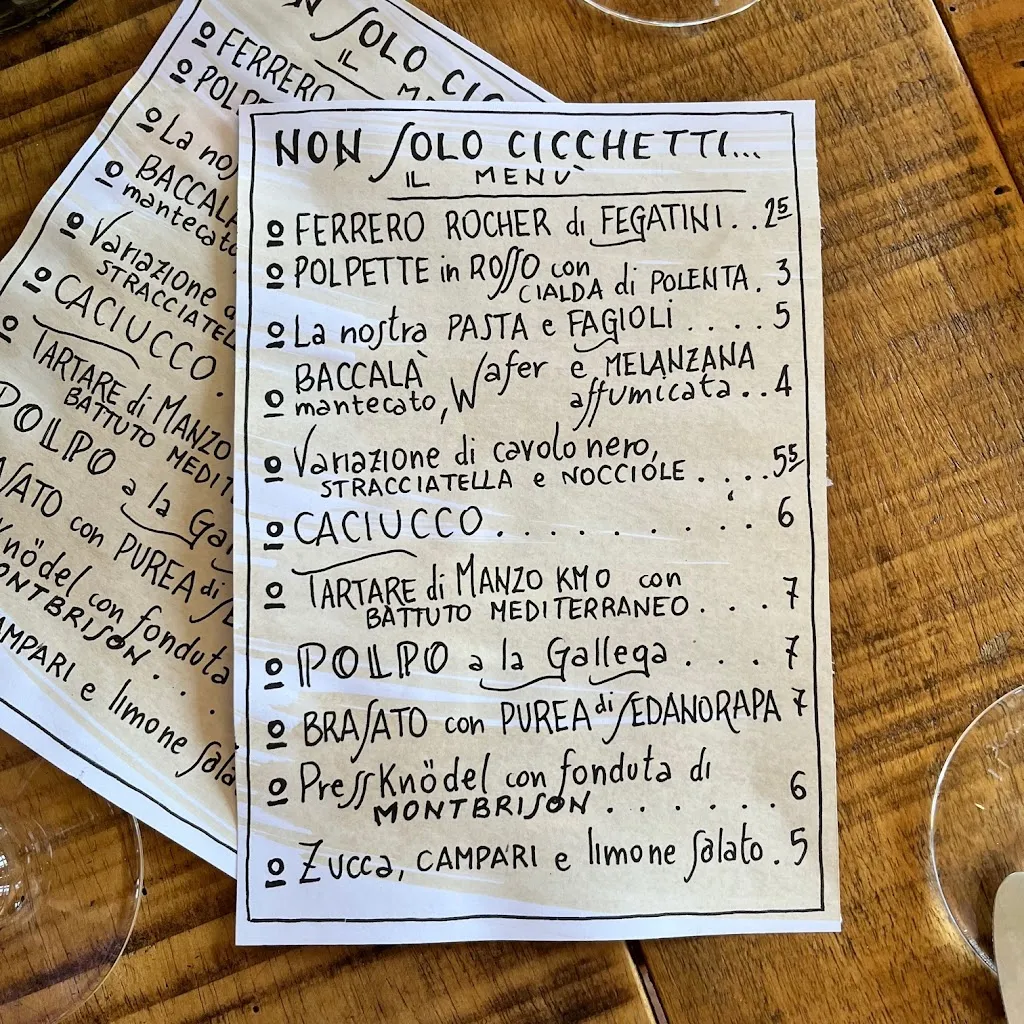 NON SOLO CICCHETTI...
IL MENÙ
FERRERO ROCHER di FEGATINI..25
POLPETTE in ROSSO con
CIALDA di POLENTA. 3
La nostra PASTA e FAGIOLI....5
BACCALÀ Wafer e MELANZANA
mantecato, affumicata..4
Variazione di cavolo nero,
STRACCIATELLA e NOCCIOLE....55
CACIUCCO.......... 6
TARTARE di MANZO KM0 con
BATTUTO MEDITERRANEO...7
POLPO a la Gallega...7
BRASATO con PUREA di SEDANORAPA 7
PressKnödel con fonduta di
MONTBRISON....... 6
Zucca, CAMPARI e limone salato.5
SOLO CIC
IL M
FERRERO
POLPE
La nos
BACCALÀ
mantecato,
Variazione d
STRACCIATELL
CACIUCCO.
TARTARE di MANZO
BATTUTO MEDIT
POLPO a la Gal
ASATO con PUREA di S
Knödel con fonduta
ONTBRISON...
AMPARI e limone sala